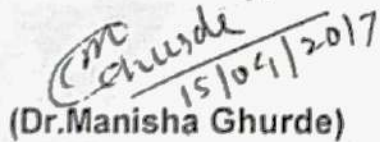 Ghurde
15/04/2017
(Dr.Manisha Ghurde)